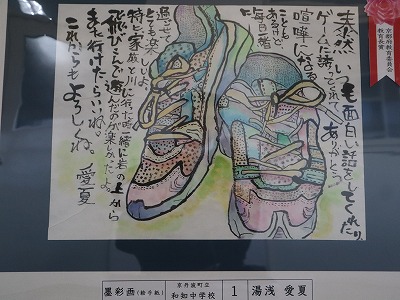 未然 いつも面白い話をしてくれたり、
ゲームに誘ってくれて、ありがとう。
喧嘩になる
ことも
あるけど、
毎日一緒に
過ごせて
とても楽しいよ。
特に家族と川に行った時一緒に岩の上から
飛びこんで遊んだのが楽しかったよ。
また行けたらいいね。
これからもよろしくね。 愛夏
京都府教育委員会
教育長賞
墨彩画(絵手紙)
京丹波町立
和知中学校
1
湯浅 愛夏